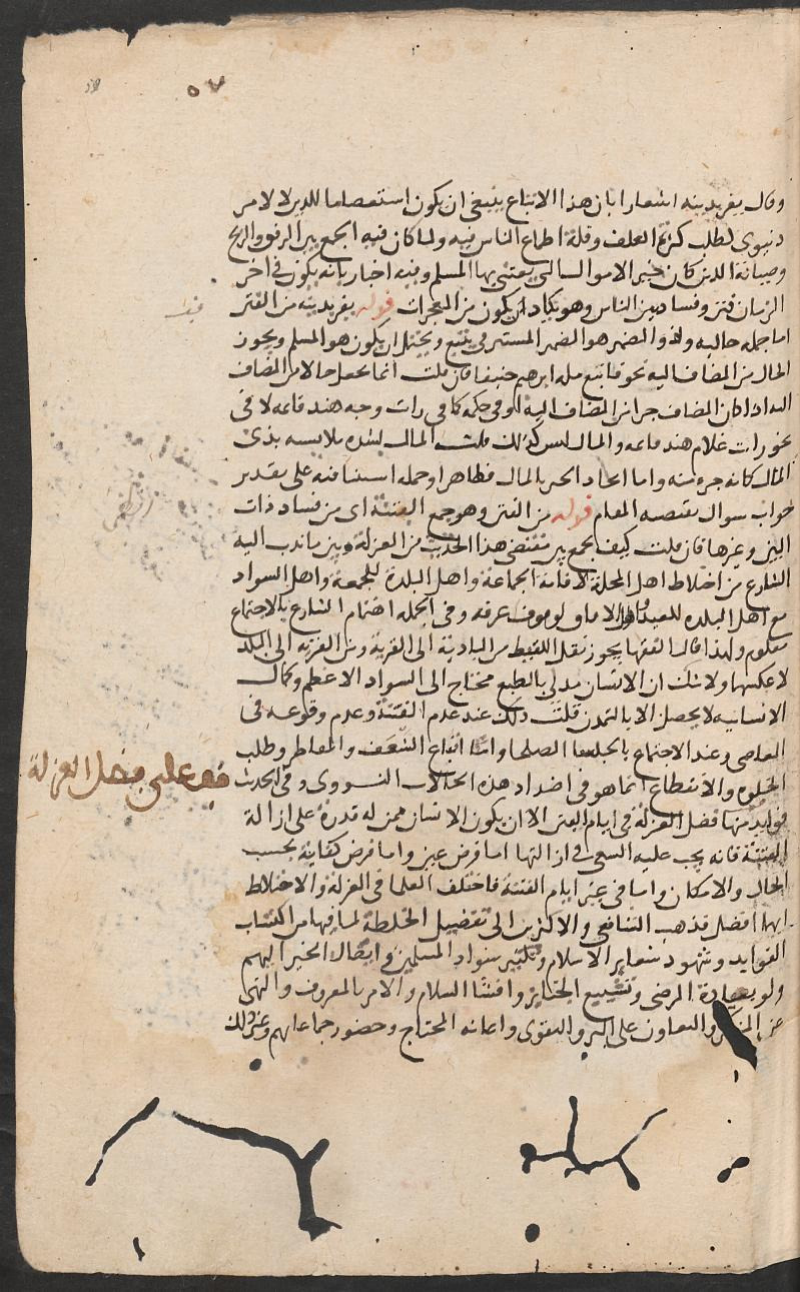 ٥٧
وقال يفر بدينه اشعارا بان هذا الاتباع ينبغي ان يكون استعصاما للدين لا لامر
دنيوى لطلب كثرة العلف وقلة اطماع الناس فيه ولما كان فيه الجمع بين الرفق والربح
وصيانة الدين كان خير الاموال التي يعتني بها المسلم وفيه اخبار بانه يكون في اخر
الزمان فتن وفساد بين الناس وهو يكاد ان يكون من المعجزات قوله يفر بدينه من الفتن
اما جملة حاليه وذو الضمير هو الضمير المستتر في يتبع ويحتمل ان يكون هو المسلم ويجوز
الحال من المضاف اليه نحو فاتبع ملة ابرهيم حنيفا فان قلت انما يجعل حالا من المضاف
اليه اذا كان المضاف جزا من المضاف اليه او في حكمه كما في رايت وجه هند قائمة لا في
نحو رايت غلام هند قائمة والمال ليس كذلك قلت المال لشدة ملابسته بذى
المال كانه جزء منه واما اتحاد الخير بالمال فظاهر او جملة استئنافية على تقدير
جواب سوال يقتضيه المقام قوله من الفتن وهو جمع الفتنة اى من فساد ذات
البين وغيرها فان قلت كيف يجمع بين مقتضى هذا الحديث من العزلة وبين ما ندب اليه
الشارع من اختلاط اهل المحلة لاقامة الجماعة واهل البلدة للجمعة واهل السواد
مع اهل البلدة للعيد واهل الافاق لوقوف عرفة وفي الجملة اهتمام الشارع بالاجتماع
معلوم ولهذا قال الفقها يجوز نقل اللقيط من البادية الى القرية ومن القرية الى البلد
لا عكسها ولا شك ان الانسان مدني بالطبع محتاج الى السواد الاعظم وكمال
الانسانية لا يحصل الا بالتمدن قلت ذلك عند عدم الفتنة وعدم وقوعه في
المعاصى وعند الاجتماع بالجلسا الصلحا واما اتباع الشعف والمقاطر وطلب
الخلوة والانقطاع انما هو في اضداد هذه الحالات النووى وفي الحديث
قف على فضل العزلة
فوايد منها فضل العزلة في ايام الفتن الا ان يكون الانسان ممن له قدرة على ازالة
الفتنة فانه يجب عليه السعي في ازالتها اما فرض عين واما فرض كفاية بحسب
الحال والامكان واما في غير ايام الفتنة فاختلف العلما في العزلة والاختلاط
ايهما افضل فذهب الشافعي والاكثرين الى تفضيل الخلطة لما فيها من اكتساب
الفوايد وشهود شعاير الاسلام وتكثير سواد المسلمين وايصال الخير اليهم
ولو بعيادة المرضى وتشييع الجنايز وافشا السلام والامر بالمعروف والنهى
عن المنكر والتعاون على البر والتقوى واعانة المحتاج وحضور جماعاتهم وغير ذلك